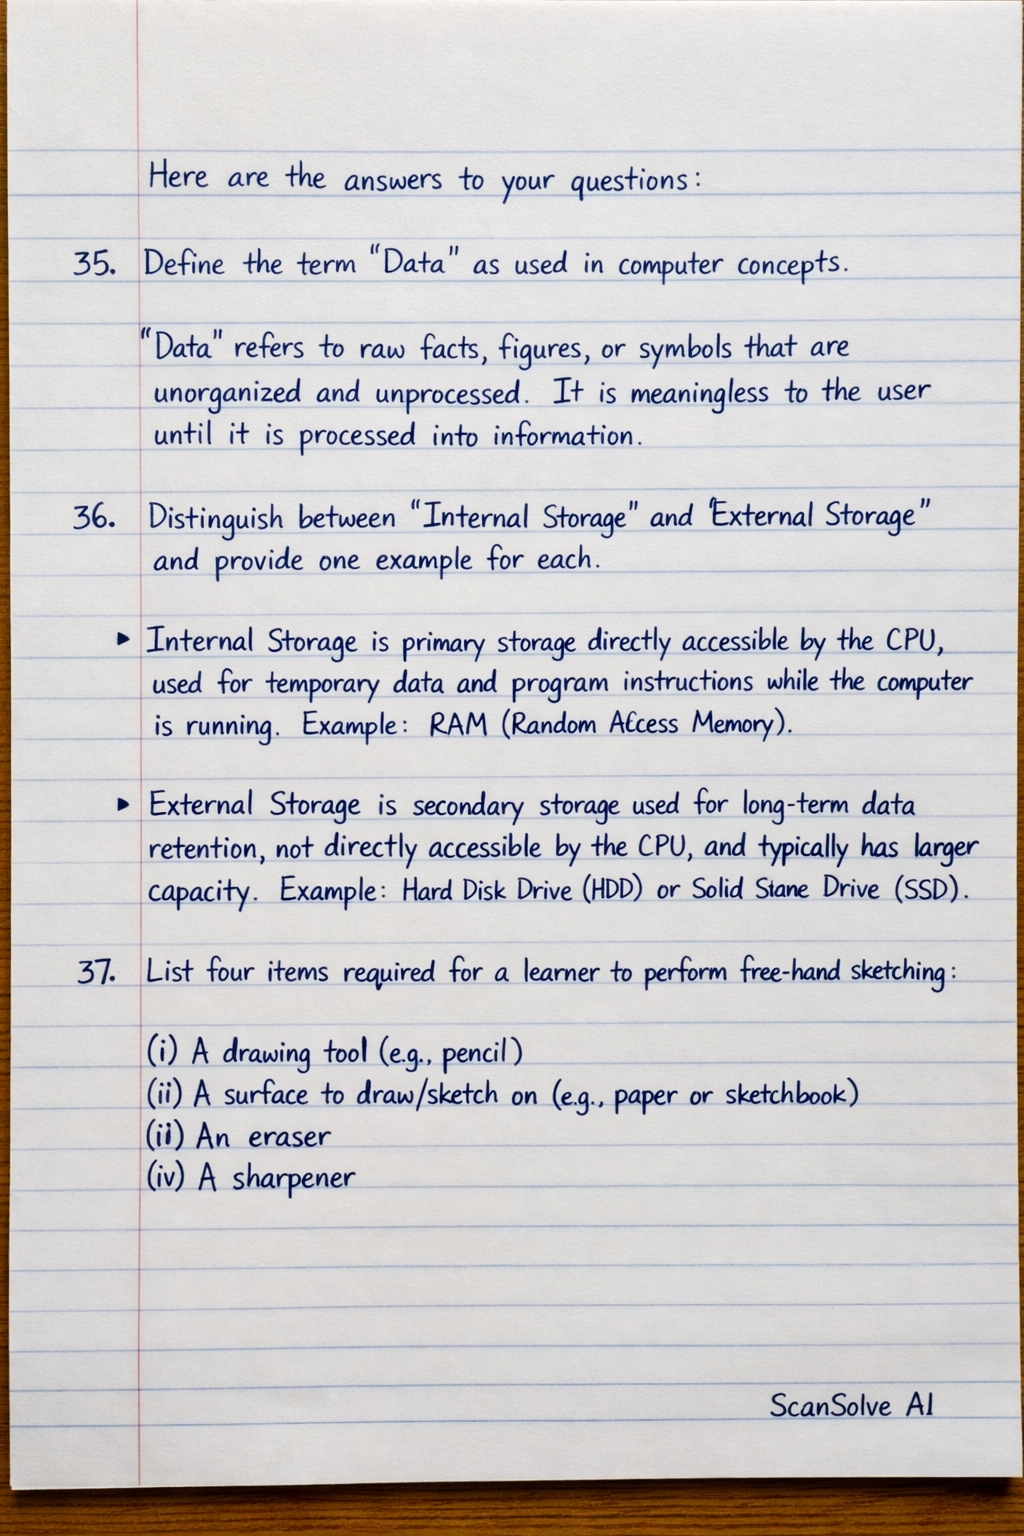 Here are the answers to your questions:
35. Define the term "Data" as used in computer concepts.
"Data" refers to raw facts, figures, or symbols that are
unorganized and unprocessed. It is meaningless to the user
until it is processed into information.
36. Distinguish between "Internal Storage" and "External Storage"
and provide one example for each.
▸ Internal Storage is primary storage directly accessible by the CPU,
used for temporary data and program instructions while the computer
is running. Example: RAM (Random Access Memory).
▸ External Storage is secondary storage used for long-term data
retention, not directly accessible by the CPU, and typically has larger
capacity. Example: Hard Disk Drive (HDD) or Solid Stane Drive (SSD).
37. List four items required for a learner to perform free-hand sketching:
(i) A drawing tool (e.g., pencil)
(ii) A surface to draw/sketch on (e.g., paper or sketchbook)
(ii) An eraser
(iv) A sharpener
ScanSolve AI